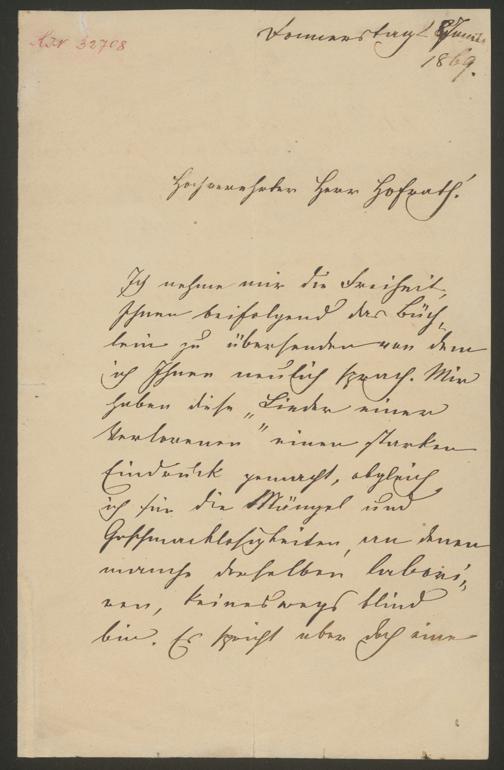 Donnerstag 8 Juni
1869.
Hochverehrter Herr Hofrath!
Ich nehme mir die Freiheit,
Ihnen beifolgend das Büch„
lein zu übersenden von dem
ich Ihnen neulich sprach. Mir
haben diese „Lieder einer
Verlorenen" einen starken
Eindruck gemacht, obgleich
ich für die Mängel und
Geschmacklosigkeiten, an denen
manche derselben labori„
ren, keineswegs blind
bin. Es spricht aber doch eine